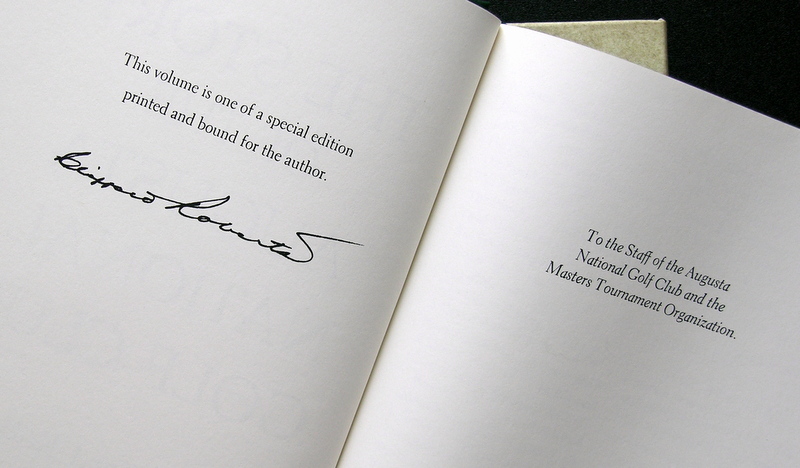 This volume is one of a special edition
printed and bound for the author.
Clifford Roberts
To the Staff of the Augusta
National Golf Club and the
Masters Tournament Organization.